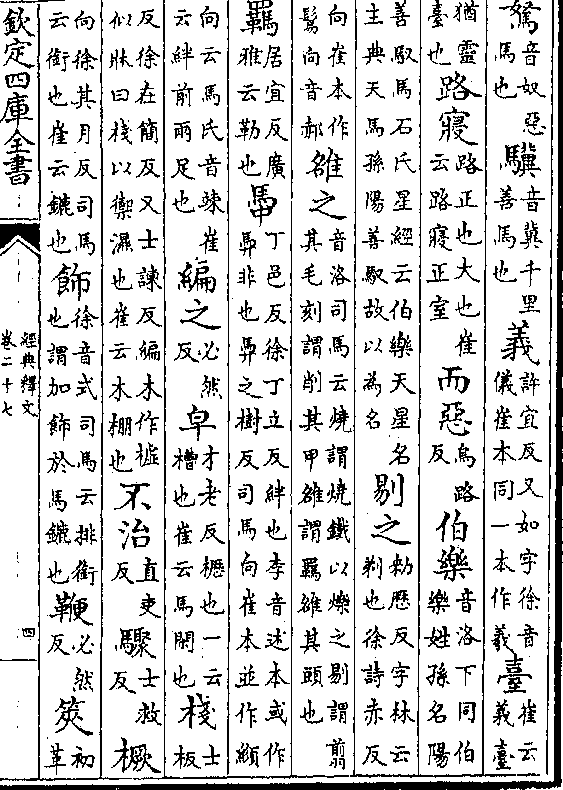 駑音奴惡馬也驥音冀千里善馬也義許宜反又如字徐音儀崔本同一本作羲臺崔云義臺
猶靈臺也路寢路正也大也崔云路寢正室而惡烏路反伯樂音洛下同伯樂姓孫名陽
善馭馬石氏星經云伯樂天星名主典天馬孫陽善馭故以為名剔之敕歷反字林云剃也徐詩赤反
向崔本作鬄向音郝雒之音洛司馬云燒謂燒鐵以爍之剔謂翦其毛刻謂削其甲雒謂羈雒其頭也
羈居宜反廣雅云勒也馽丁邑反徐丁立反絆也李音述本或作馵非也馵之樹反司馬向崔本並作顈
向云馬氏音竦崔云絆前兩足也編之必然反皁才老反櫪也一云槽也崔云馬閑也棧士板
反徐在簡反又士諫反編木作櫨似牀曰棧以禦濕也崔云木棚也不治直吏反驟士救反橛
向徐其月反司馬云銜也崔云鑣也飾徐音式司馬云排銜也謂加飾於馬鑣也鞭必然反筴初革
欽定四庫全書
經典釋文
卷二十七
四